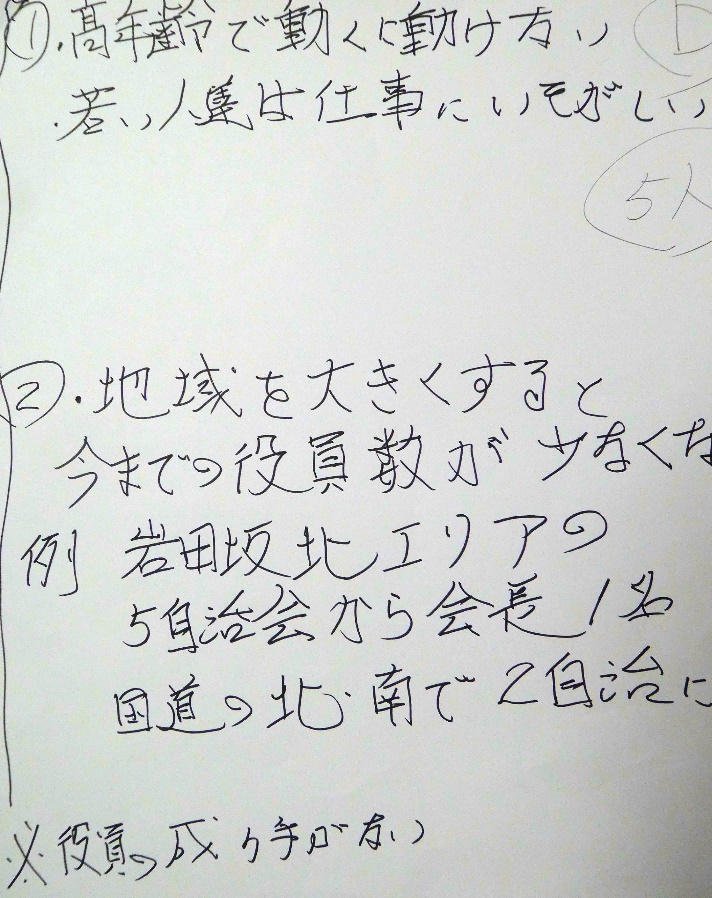 ①.高年齢で動くに動けない
.若い人達は仕事にいそがしい
5人
②.地域を大きくすると
今までの役員数が少なくな
例 岩田坂北エリアの
5自治会から会長1名
国道の北.南で2自治に
※役員の成り手がない